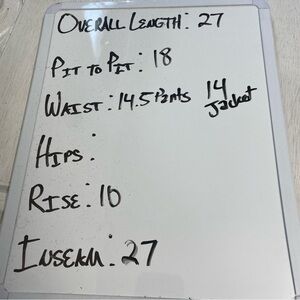 Overall Length: 27
Pit to Pit: 18
Waist: 14.5 Pants 14 Jacket
Hips:
Rise: 10
Inseam: 27